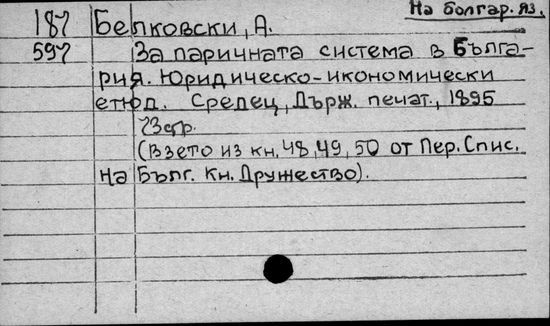 На болгар. яз.
187 Белковски, А.
597 За паричната система в Бълга-
рия. Юридическо-икономически
етюд. Средец, Държ. печат., 1895
73 стр.
(Взето из кн. 48, 49, 50 от Пер. Спис.
на Бълг. Кн. Дружество).